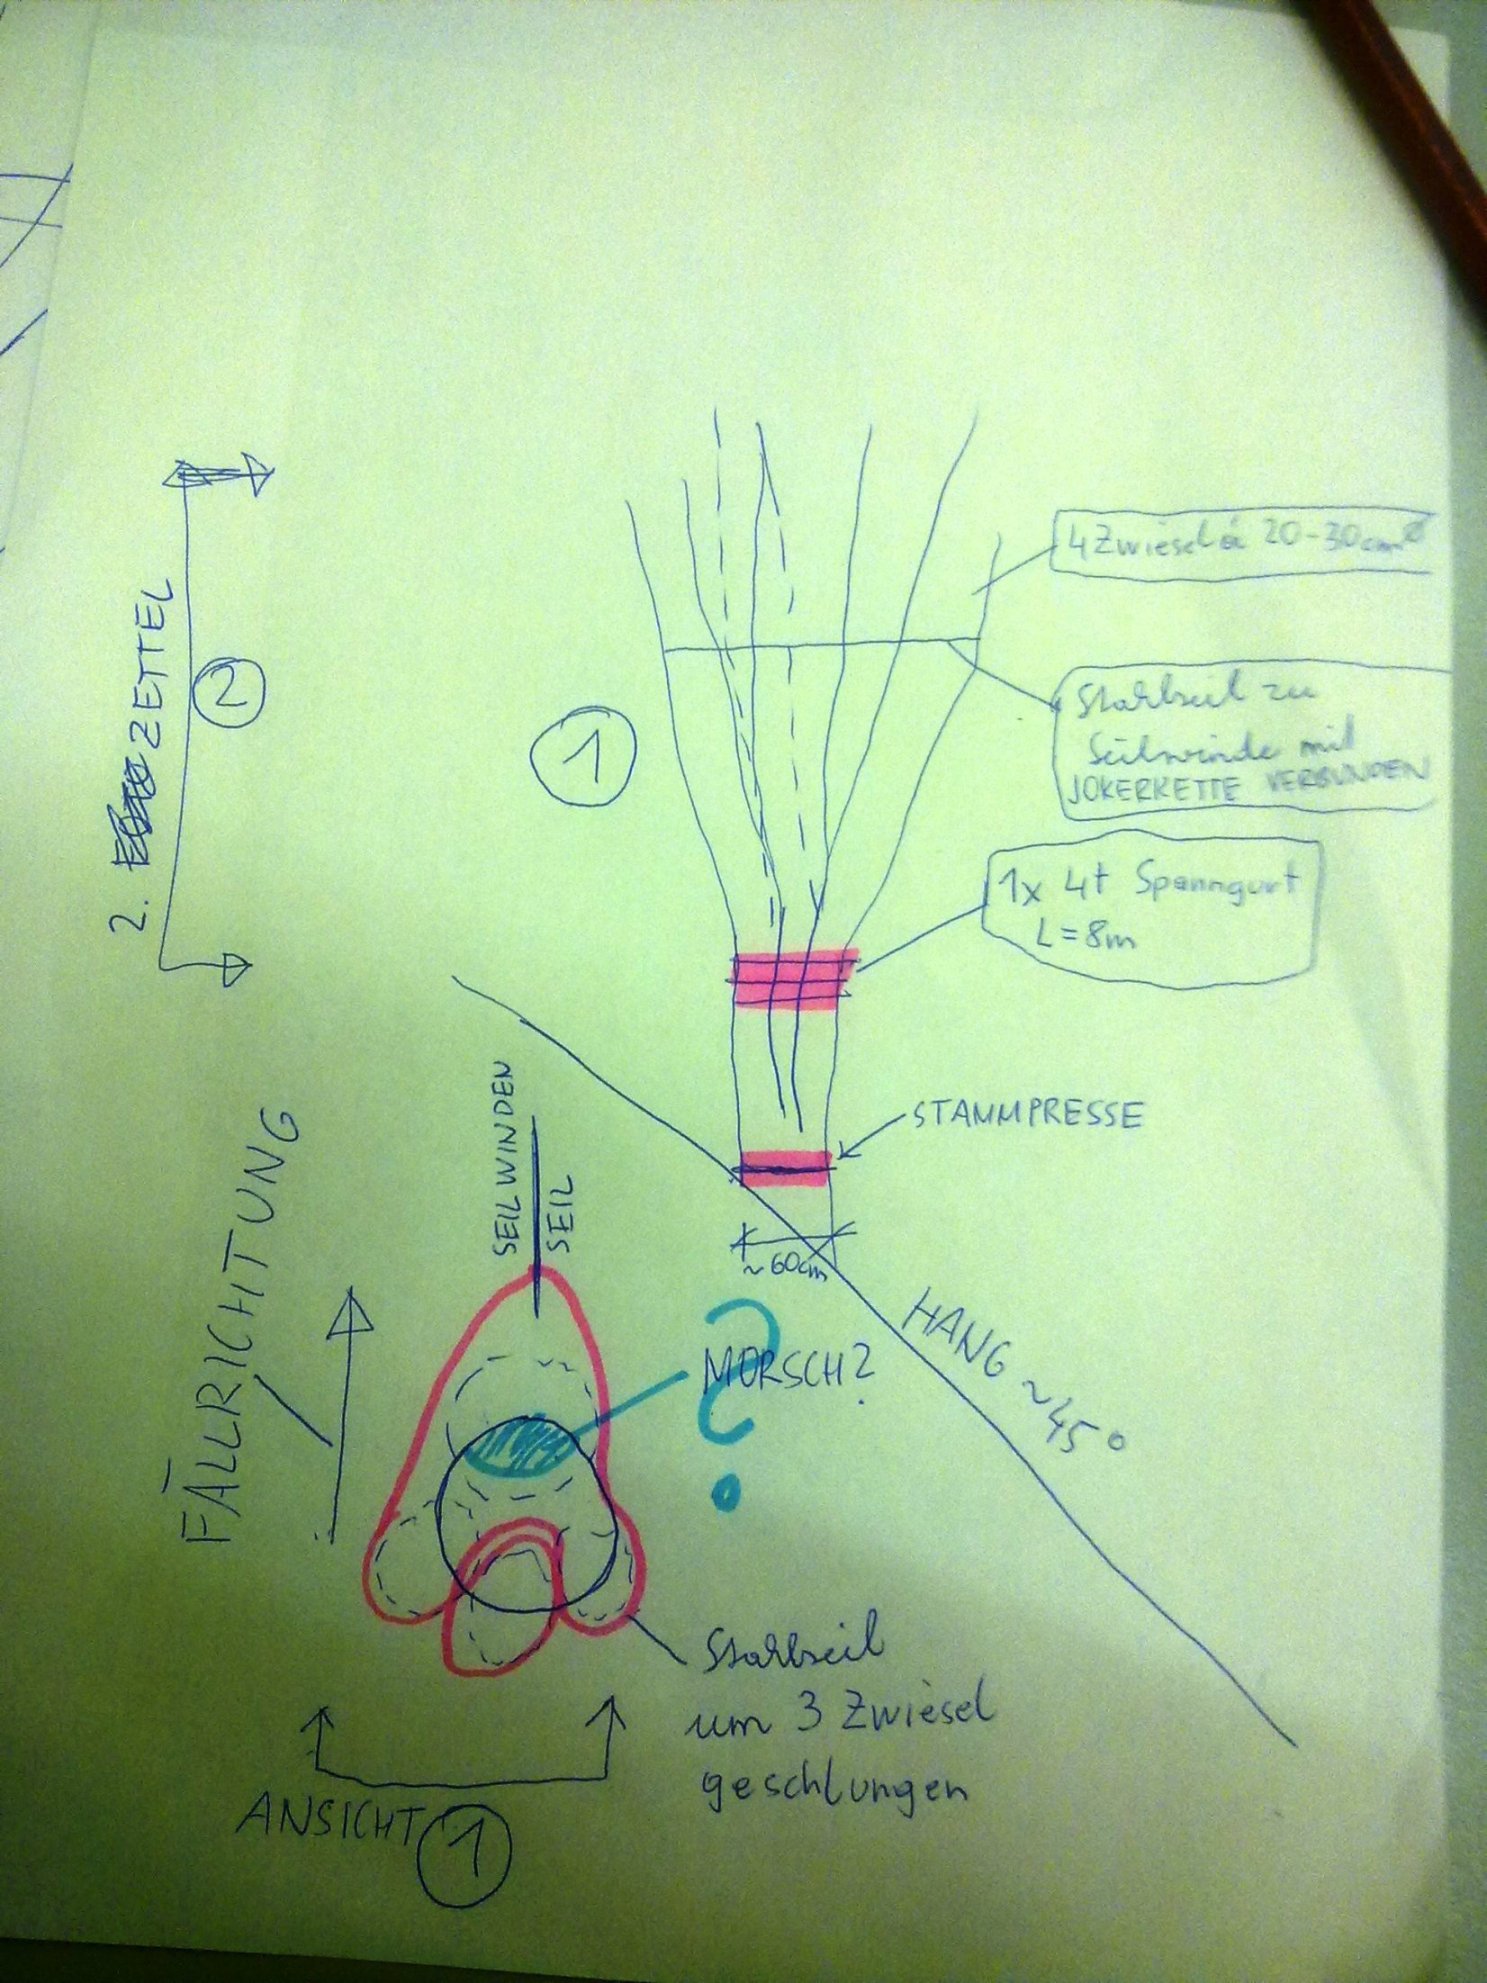 4 Zwiesel á 20-30cm Ø
Stahlseil zu
Seilwinde mit
JOKERKETTE VERBUNDEN
1x 4t Spanngurt
L=8m
1
2. ZETTEL
2
STAMMPRESSE
~60cm
HANG ~45°
FÄLLRICHTUNG
SEILWINDEN
SEIL
MORSCH?
?
Stahlseil
um 3 Zwiesel
geschlungen
ANSICHT 1